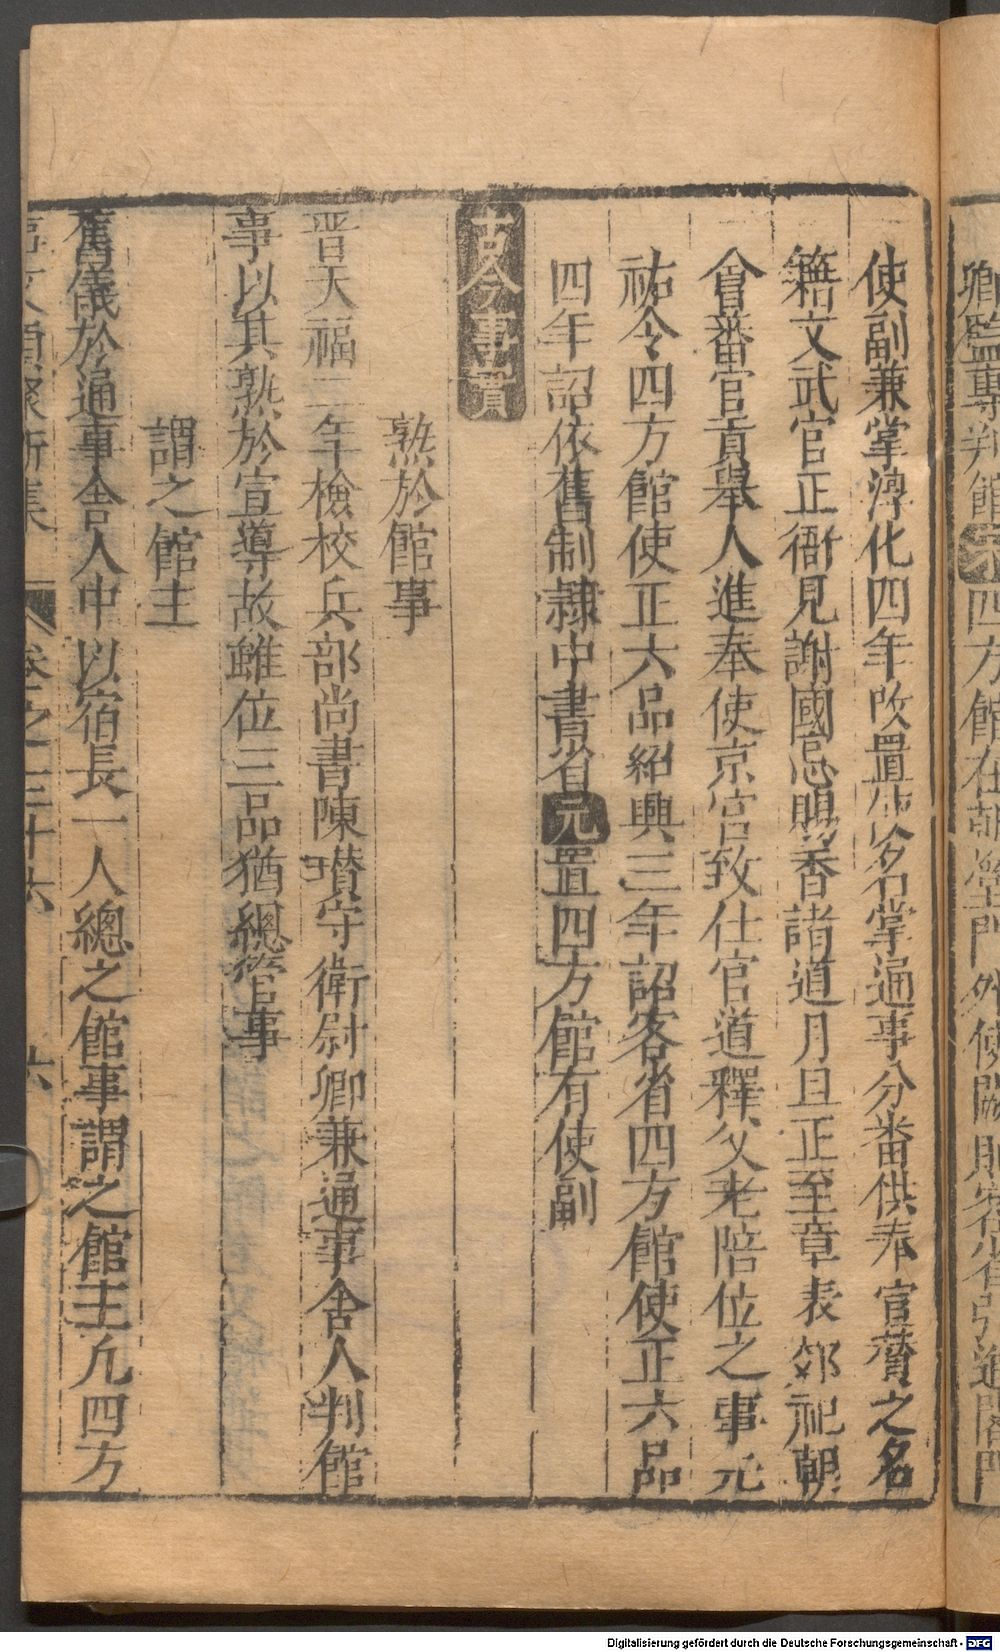 卿監專判館宋四方館在朝堂門外使闕則客省引進閤門
使副兼掌淳化四年改置使名掌通事分番供奉官贊之名
籍文武官正衙見謝國忌賜香諸道月旦正至章表郊祀朝
會蕃官貢舉人進奉使京官致仕官道釋父老陪位之事元
祐令四方館使正六品紹興三年詔客省四方館使正六品
四年詔依舊制隸中書省元置四方館有使副
古今事實
熟於館事
晋天福三年檢校兵部尚書陳瓚守衛尉卿兼通事舍人判館
事以其熟於宣導故雖位三品猶總管事
謂之館主
舊儀於通事舍人中以宿長一人總之館事謂之館主凡四方
事文類聚新集 卷之三十六 六
Digitalisierung gefördert durch die Deutsche Forschungsgemeinschaft - DFG